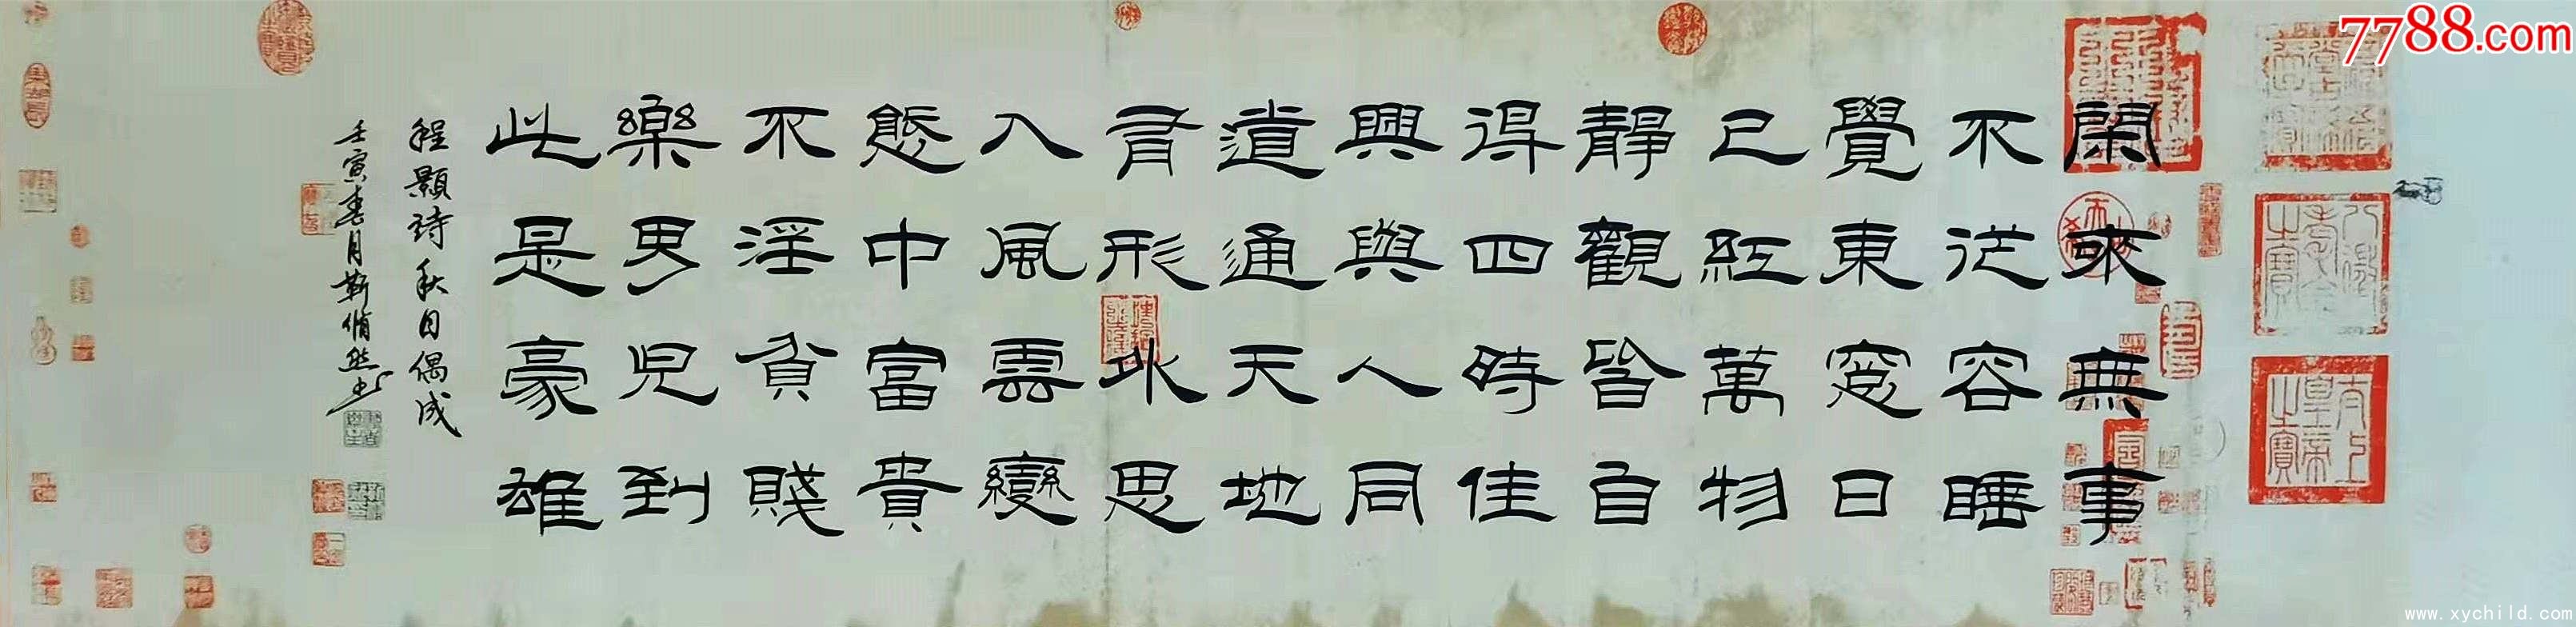 閑來無事
不從容睡
覺東窓日
已紅萬物
靜觀皆自
得四時佳
興與人同
道通天地
有形外思
入風雲變
態中富貴
不淫貧賤
樂男兒到
此是豪雄
程顥詩秋日偶成
壬寅春月靳脩然书
八徵耄念之寶
太上皇帝之寶
7788.com
www.xychild.com